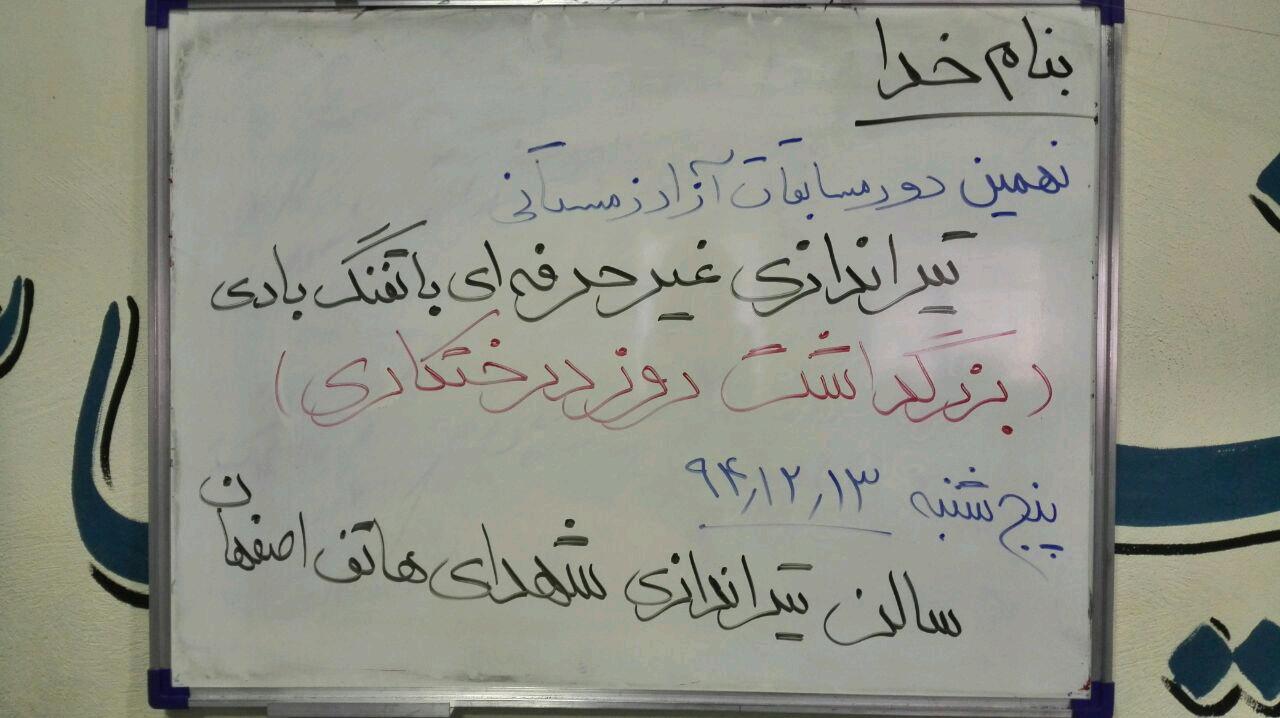 بنام خدا
نهمین دور مسابقات آزاد زمستانی
تیراندازی غیر حرفه‌ای با تفنگ بادی
(بزرگداشت روز درختکاری)
پنج شنبه ۹۴/۱۲/۱۳
سالن تیراندازی شهدای هاتف اصفهان